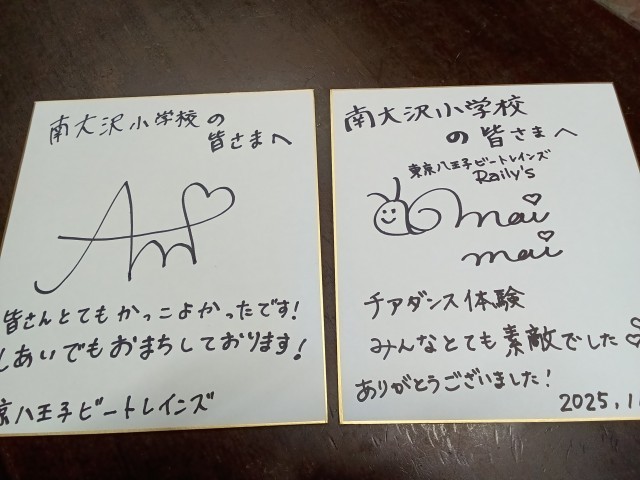 南大沢小学校の
皆さまへ
皆さんとてもかっこよかったです!
しあいでもおまちしております!
京八王子ビートレインズ
南大沢小学校
の皆さまへ
東京八王子ビートレインズ
Raily's
mai
mai
チアダンス体験
みんなとても素敵でした
ありがとうございました!
2025.1